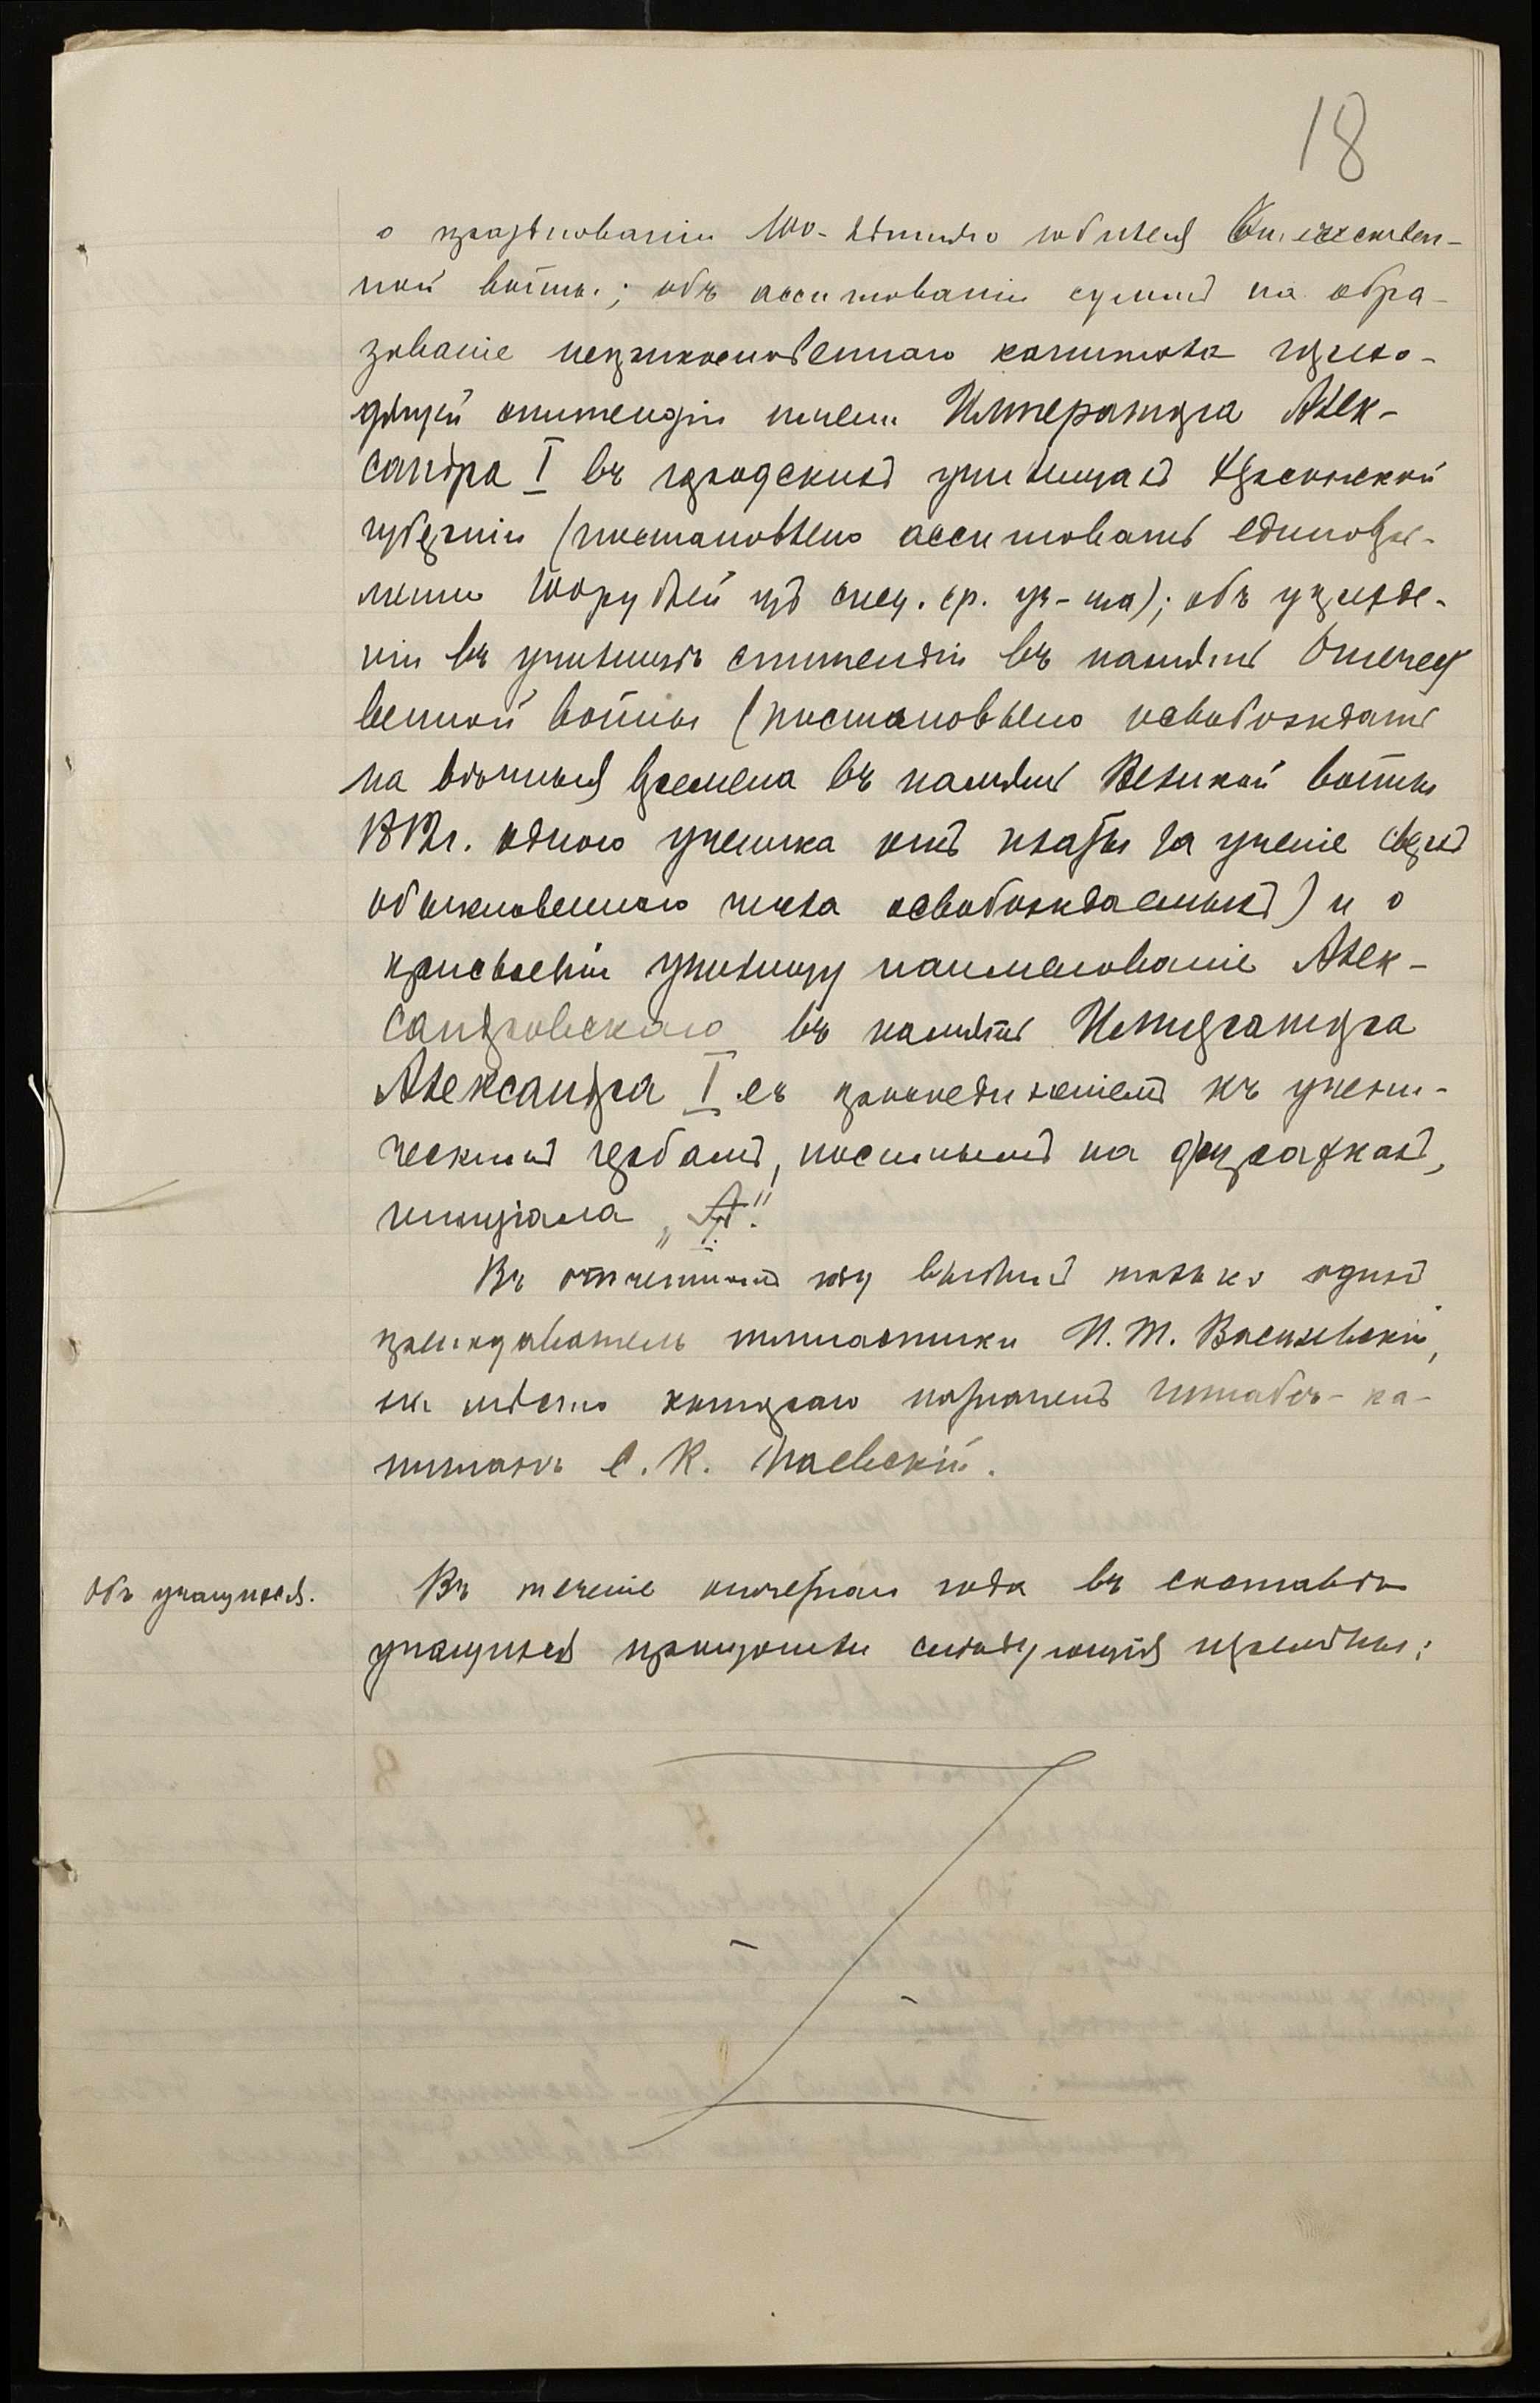 18
о празднованіи 100-лѣтняго юбилея Отечествен-
ной войны; объ ассигнованіи суммъ на обра-
зованіе неприкосновеннаго капитала
стипендіи имени Императора Алек-
сандра I въ городскихъ училищахъ Херсонской
губерніи (постановлено ассигновать единовре-
менно 100 рублей изъ спец. ср. уч-ща); объ учрежде-
ніи въ училищѣ стипендіи въ память Отечест
венной войны (постановлено освобождать
на вѣчныя времена въ память Великой войны
1812 г. одного ученика отъ платы за ученіе сверхъ
обыкновеннаго числа освобождаемыхъ) и о
присвоеніи училищу наименованіе Алек-
сандровскаго въ память Императора
Александра I съ присоединеніемъ къ учени-
ческимъ гербамъ, носимымъ на фуражкахъ,
иниціала „А I".
Въ отчетномъ году выбылъ только одинъ
преподаватель гимнастики И. Т. Василевскій,
на мѣсто котораго назначенъ штабсъ-ка-
питанъ С. К. Паевскій.
Объ учащихся.
Въ теченіе отчетнаго года въ составѣ
учащихся произошли слѣдующія перемѣны: